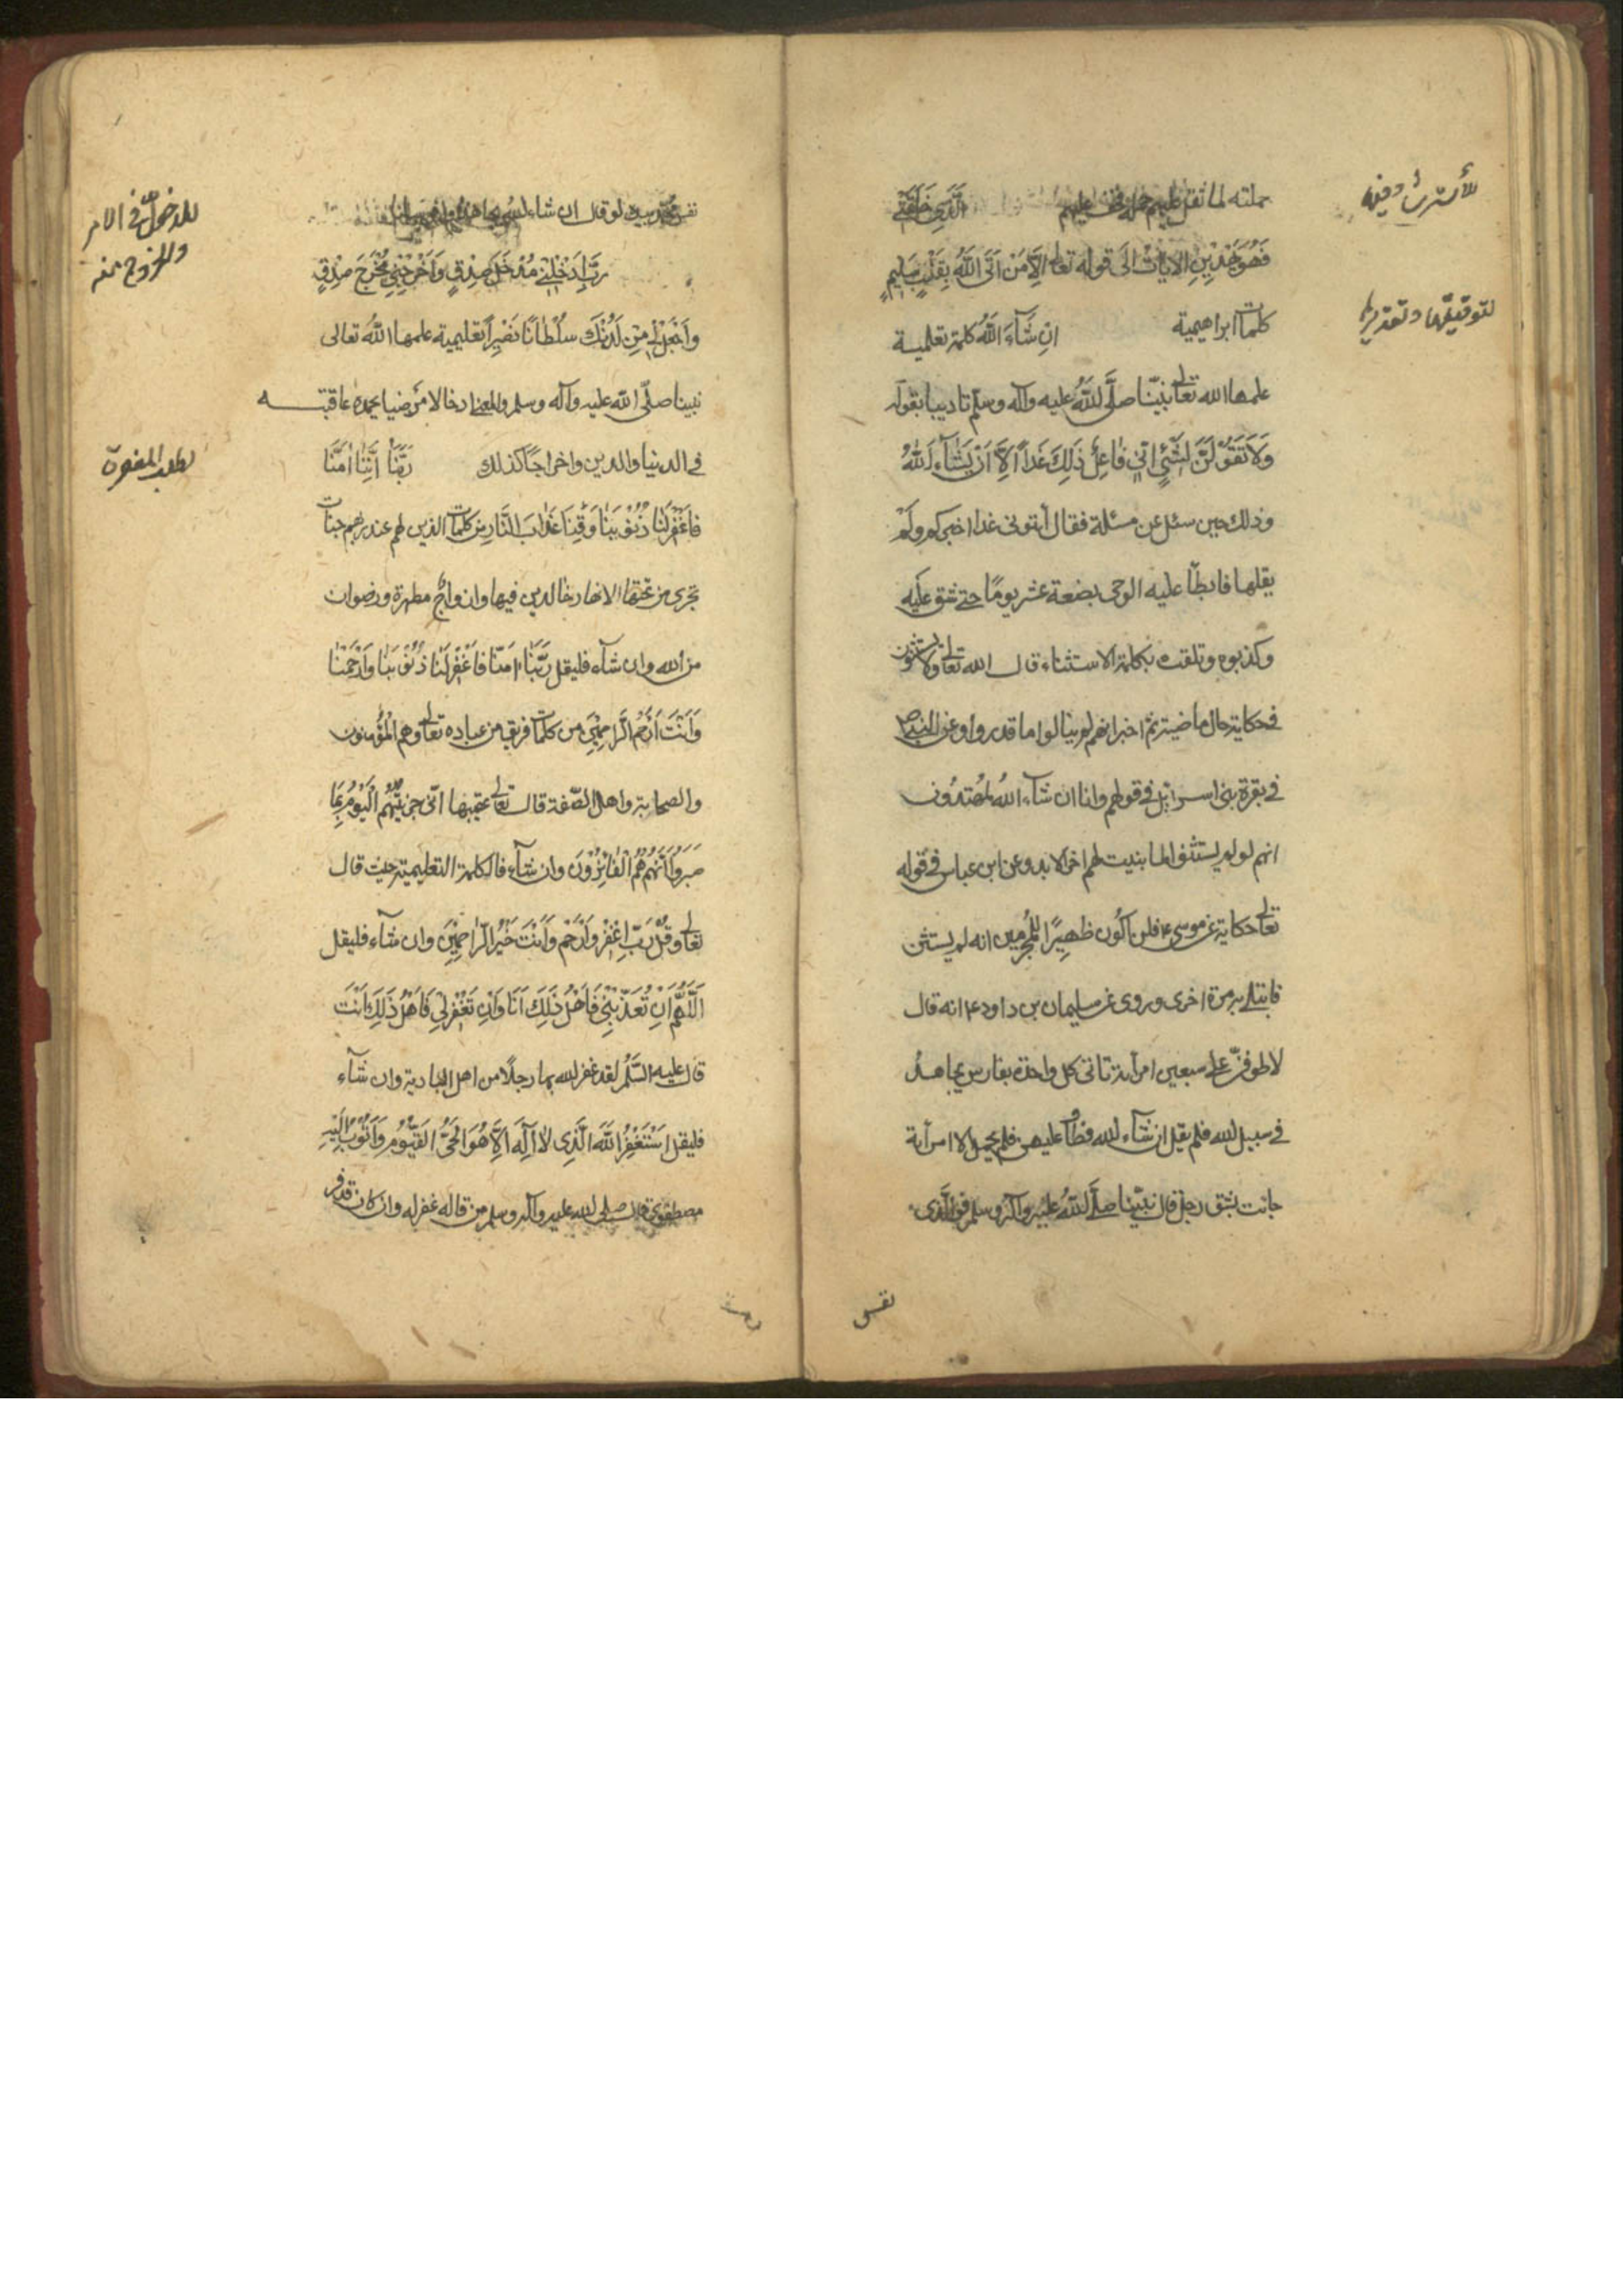 حملته لما ثقل عليهم حمله وخف عليهم الَّذِي خَلَقَنِي
فَهُوَ يَهْدِينِ الايات الَى قوله تعالى اِلَّا مَنْ اَتَى اللّٰهَ بِقَلْبٍ سَلِيمٍ
كلمات ابراهيمية اِن شَآءَ اللّٰهُ كلمة تعليمية
علمها الله تعالى نبيّنا صلَّى اللّٰهُ عليه وآله وسلّم تاديبا بقوله
وَلَا تَقُوْلَنَّ لِشَيْءٍ اِنِّي فَاعِلٌ ذَلِكَ غَداً اِلَّا اَنْ يَشَآءَ اللّٰهُ
وذلك حين سئل عن مسئلة فقال أيتوني غدا اخبركم ولم
يقلها فابطأ عليه الوحى بضعة عشر يومًا حتى شق عَلَيه
وكذبوه وتلقت بكلمة الاستثناء قال الله تعالى ولا يستثنون
فى حكاية حال ماضية ثم اخبر انهم لم ينالوا ما قدروا وعن النبي ص
فى بقرة بنى اسرائيل فى قولهم وانا ان شآء اللّٰهُ لمُهتدُون
انهم لو لم يستثنوا لما بينت لهم اخر الابد وعن ابن عباس فى قوله
تعالى حكاية عن موسى ع فلن اكُون ظهيرًا للمُجرِمين انه لم يستثن
فابتلى به مرة اخرى وروى عن سليمان بن داود ع انه قال
لاطوفنّ على سبعين امرأة تاتى كل واحدة بفارس يجاهدُ
فى سبيل الله فلم يقل ان شآء الله فطاف عليهن فلم يحمل الا امرأة
جائت بشق رجل قال نبيّنا صلَّى اللّٰهُ عليه وآله وسلم فوالَّذى
نفس
للأسترشاد فيه
لتوقيتها وتقديرها
نفس محمد بيده لو قال ان شاء الله
رَبِّ اَدْخِلْنِي مُدْخَلَ صِدْقٍ وَاَخْرِجْنِي مُخْرَجَ صِدْقٍ
وَاجْعَلْ لِي مِنْ لَدُنْكَ سُلْطَانًا نَصِيراً تعليمية علمها اللّٰهُ تعالى
نبينا صلّى اللّٰه عليه وآله وسلم والمعنى ادخالا مرضيا يحمد عاقبته
فى الدنيا والدين واخراجًا كذلك رَبَّنَا اِنَّنَا اٰمَنَّا
فَاغْفِرْ لَنَا ذُنُوْبَنَا وَقِنَا عَذَابَ النَّار من كلمات الذين لهم عند ربهم جنات
تجرى من تحتها الانهار خالدين فيها وازواج مطهرة ورضوان
من الله وان شآء فليقل رَبَّنَا اٰمَنَّا فَاغْفِرْ لَنَا ذُنُوْبَنَا وَارْحَمْنَا
وَاَنْتَ اَرْحَمُ الرَّاحِمِيْنَ من كلمات فريق من عباده تعالى وهم المُؤمنون
والصحابة واهل الصّفة قال تعالى عقيبها انّى جزيتُهُم الْيَوْمَ بِمَا
صَبَرُوا اَنَّهُمْ هُمُ الْفَائِزُوْنَ وان شآء فالكلمة التعليمية حيث قال
تعالى وقُل رَبِّ اغْفِرْ وَارْحَمْ وَاَنْتَ خَيْرُ الرَّاحِمِيْنَ وان شآء فليقل
اَللّٰهُمَّ اِنْ تُعَذِّبْنِي فَاَهْلُ ذَلِكَ اَنَا وَاِنْ تَغْفِرْ لِي فَاَهْلُ ذَلِكَ اَنْتَ
قال عليه السَّلم لقد غفر الله بها رجلًا من اهل البادية وان شآء
فليقل اَسْتَغْفِرُ اللّٰهَ الَّذِي لَا اِلٰهَ اِلَّا هُوَ الْحَىُّ القَيُّوْمُ وَاَتُوْبُ اِلَيْهِ
مصطفوية قال صلى الله عليه وآله وسلم من قاله غفر له وان كان قد فر
للدخول فى الامر
والخروج منه
لطلب المغفرة